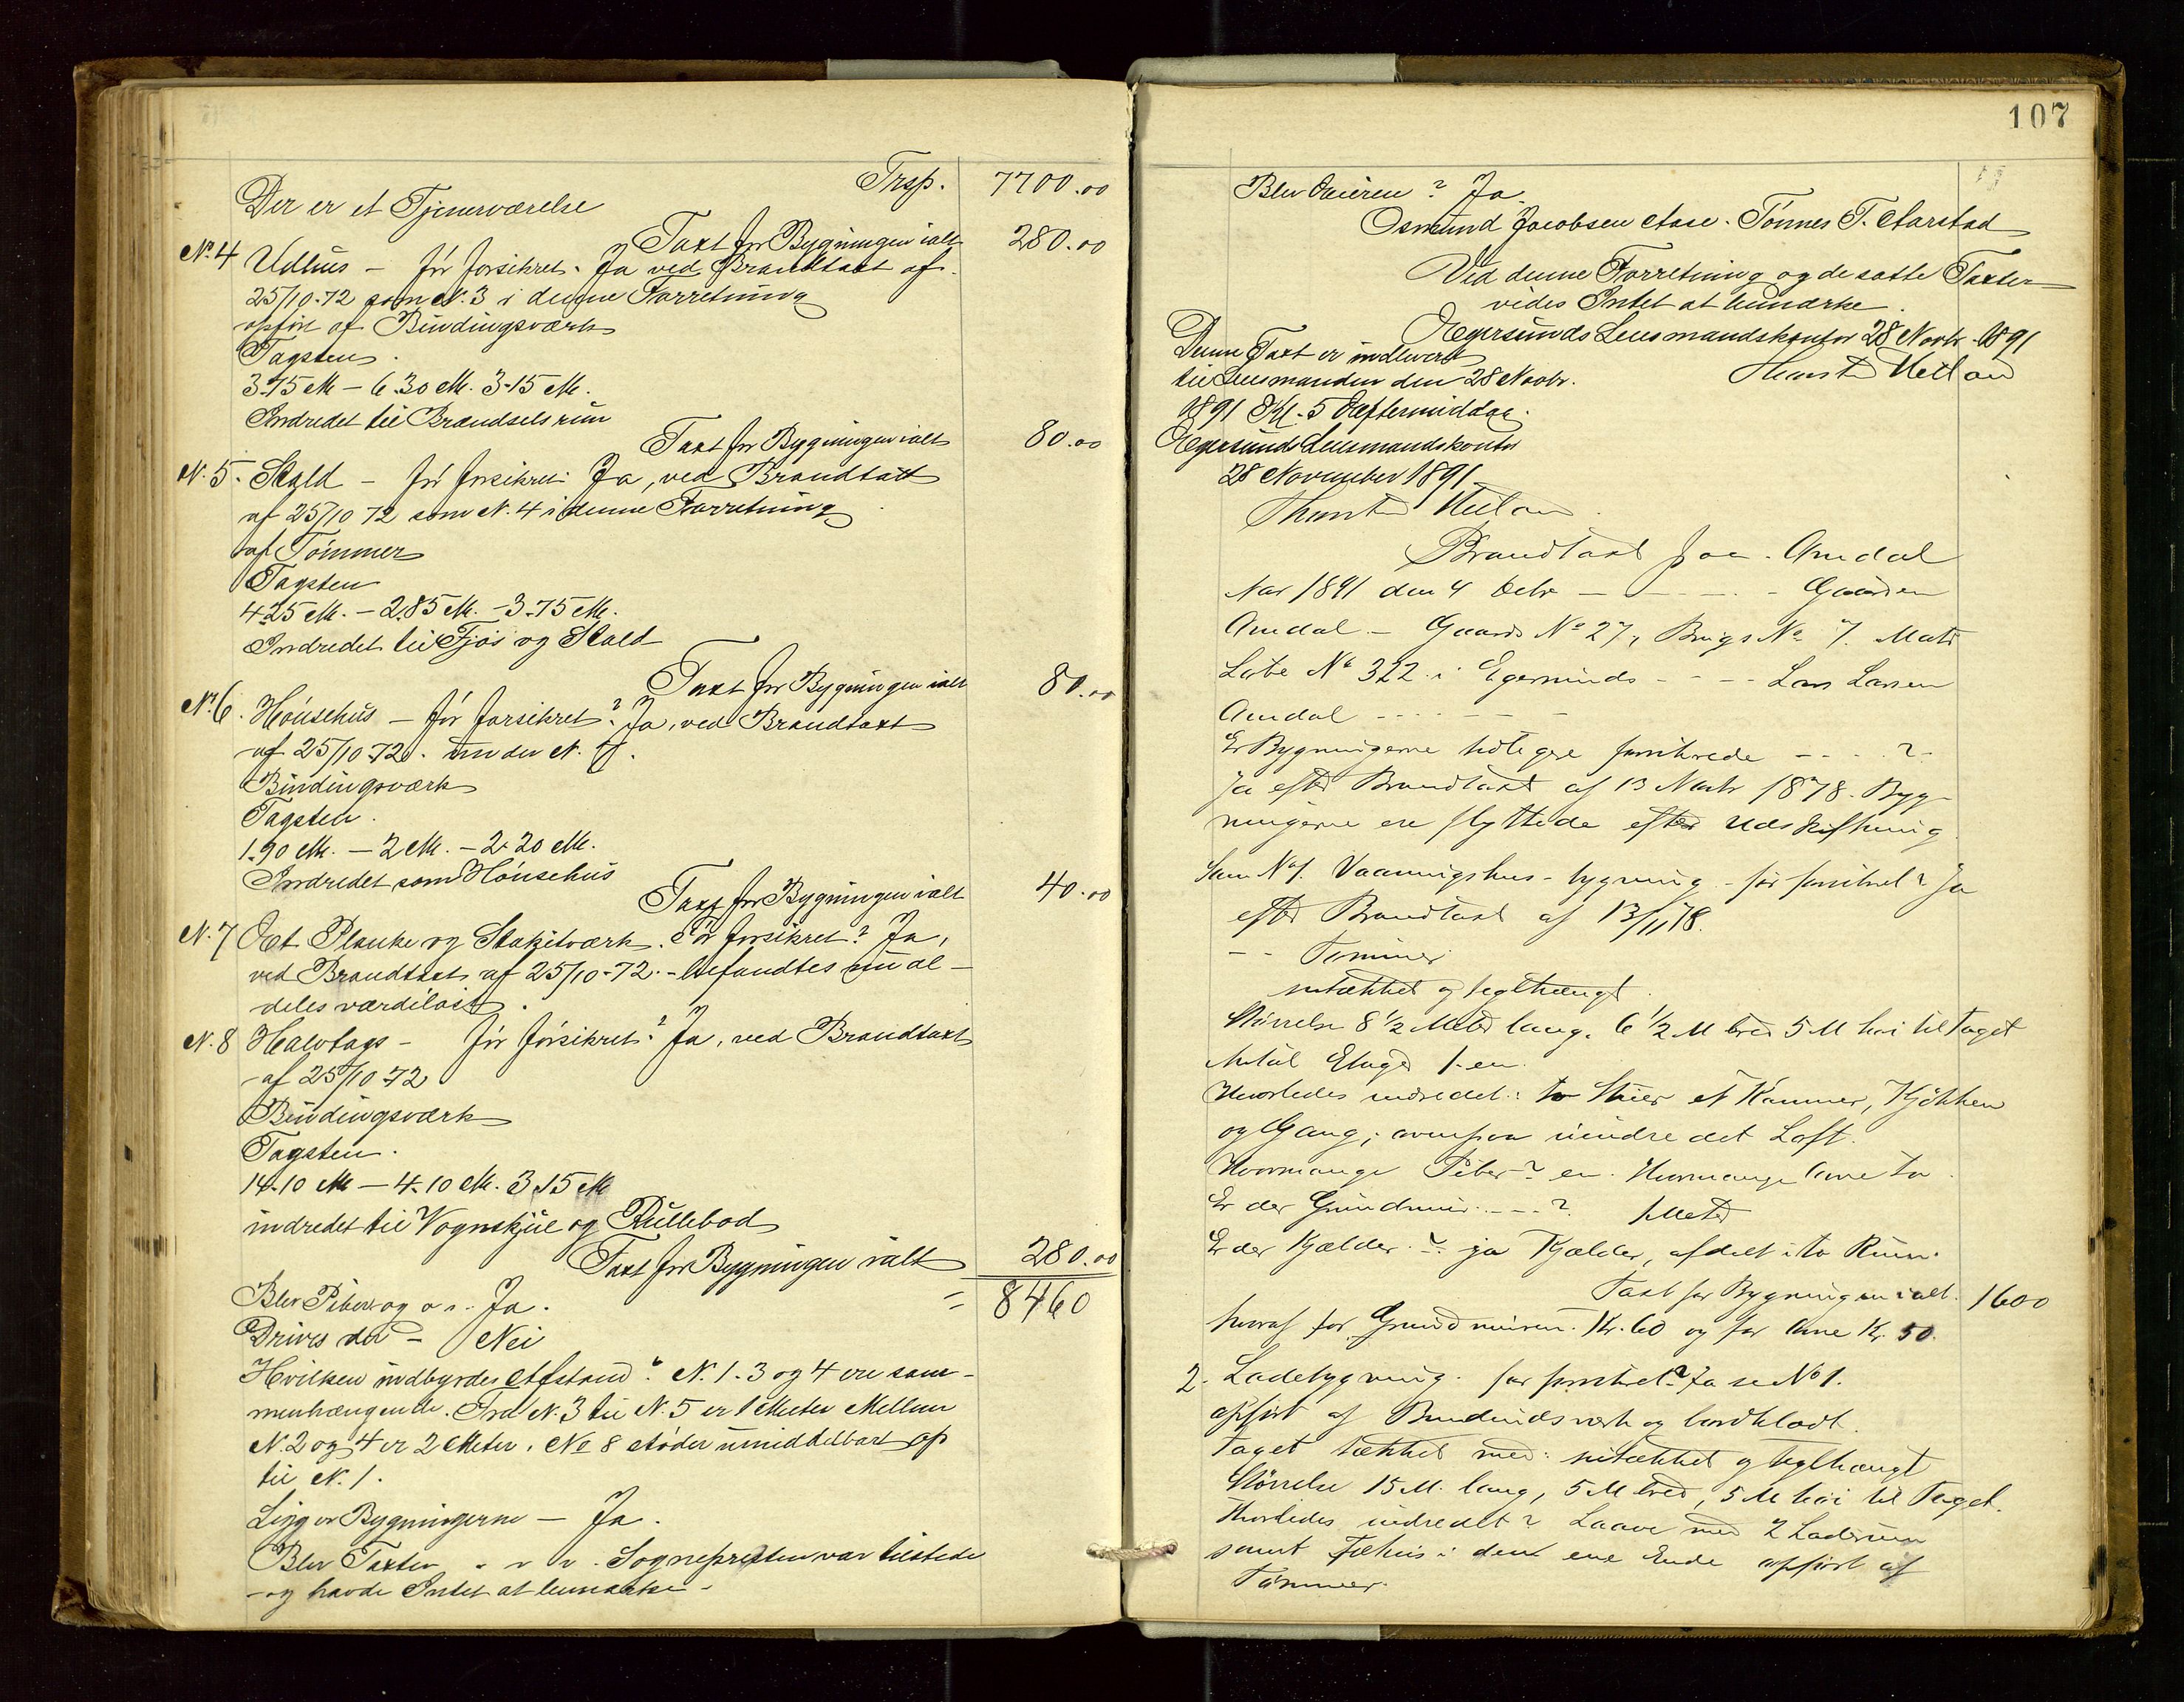 Trsp. 7700.00
Der er et Tjenerværelse
Taxt for Bygningen ialt 280.00
No. 4 Udhus - før forsikret. Ja ved Brandtaxt af
25/10-72 som N. 3 i denne Forretning
opført af Bindingsværk
Tagsten.
3.75 M - 6.30 M. 3.15 M.
Indredet til Brændselsrum
Taxt for Bygningen ialt 80.00
N. 5. Stald - før forsikret. Ja, ved Brandtaxt
af 25/10 72 som N. 4 i denne Forretning
af Tømmer
Tagsten
4.25 M. - 2.85 M. - 3.75 M.
Indredet til Fjøs og Stald
Taxt for Bygningen ialt 80.00
No. 6. Hønsehus - før forsikret? Ja, ved Brandtaxt
af 25/10 72. under N.
Bindingsværk
Tagsten.
1.90 M. - 2 M. - 2.20 M.
Indredet som Hønsehus
Taxt for Bygningen ialt 40.00
N. 7 Et Planke og Stakitværk. før forsikret? Ja,
ved Brandtaxt af 25/10-72. - befandtes nu al-
deles værdiløst.
N. 8 Halvtags - før forsikret? Ja, ved Brandtaxt
af 25/10 72
Bindingsværk
Tagsten.
14.10 M - 4.10 M. 3.15 M
indredet til Vognskjul og Rullebod
Taxt for Bygningen ialt 280.00
Blev Piber og o. s. Ja. = 8460
Drives der - Nei
Hvilken indbyrdes Afstand? N. 1-3 og 4 ere sam-
menhængende. Fra N. 3 til N. 5 er 1 Meter Mellem
N. 2 og 4 er 2 Meter. No 8 støder umiddelbart op
til N. 1.
Ligger Bygningerne - Ja.
Blev Taxten - Sognepresten var tilstede
og havde Intet at bemærke -
107
Blev Eieren? Ja.
Osmund Jacobsen Aase. Tønnes T. Aarstad
Ved denne Forretning og de satte Taxter
vides Intet at bemærke.
Egersunds Lensmandskontor 28 Novbr. 1891
Denne Taxt er indleveret
til Lensmanden den 28 Novbr.
1891 Kl. 5 Eftermiddag.
Egersunds Lensmandskontor
28 November 1891
Brandtaxt paa Amdal
Aar 1891 den 4 Decbr - - - - Gaarden
Amdal - Gaards No 27, Brugs No 7. Matr
Løbe No 322 i Egersunds - - - - Lars Larsen
Amdal - - - - -
Er Bygningerne tidligere forsikrede - - - ?
Ja efter Brandtaxt af 13 Novbr 1878. Byg-
ningerne ere flyttede efter Udskiftning
Som No 1. Vaaningshus-bygning - før forsikret? Ja
efter Brandtaxt af 13/11 78.
- - Tømmer
teglhængt
Størrelse 8 1/2 Meter lang. 6 1/2 M bred 5 M høi til Taget
Antal Etager 1-en.
Hvorledes indredet: to Stuer et Kammer, Kjøkken
og Gang; ovenpaa uindredet Loft.
Hvormange Piber? en. Hvormange Ovne to
Er der Grundmur. - - ? 1 Meter
Er der Kjælder. ? ja Kjælder, afdelt i to Rum.
Taxt for Bygningen ialt. 1600
hvoraf for Grundmuren. Kr. 60 og for Ovne Kr. 50.
2. Ladebygning. før forsikret? Ja se No 1.
opført af Bindingsværk og bordklædt.
Taget tækket med: og teglhængt
Størrelse 15 M. lang, 5 M bred, 5 M høi til Taget.
Hvorledes indredet? Laave med 2 Laderum
samt Fæhus i den ene Ende opført af
Tømmer.